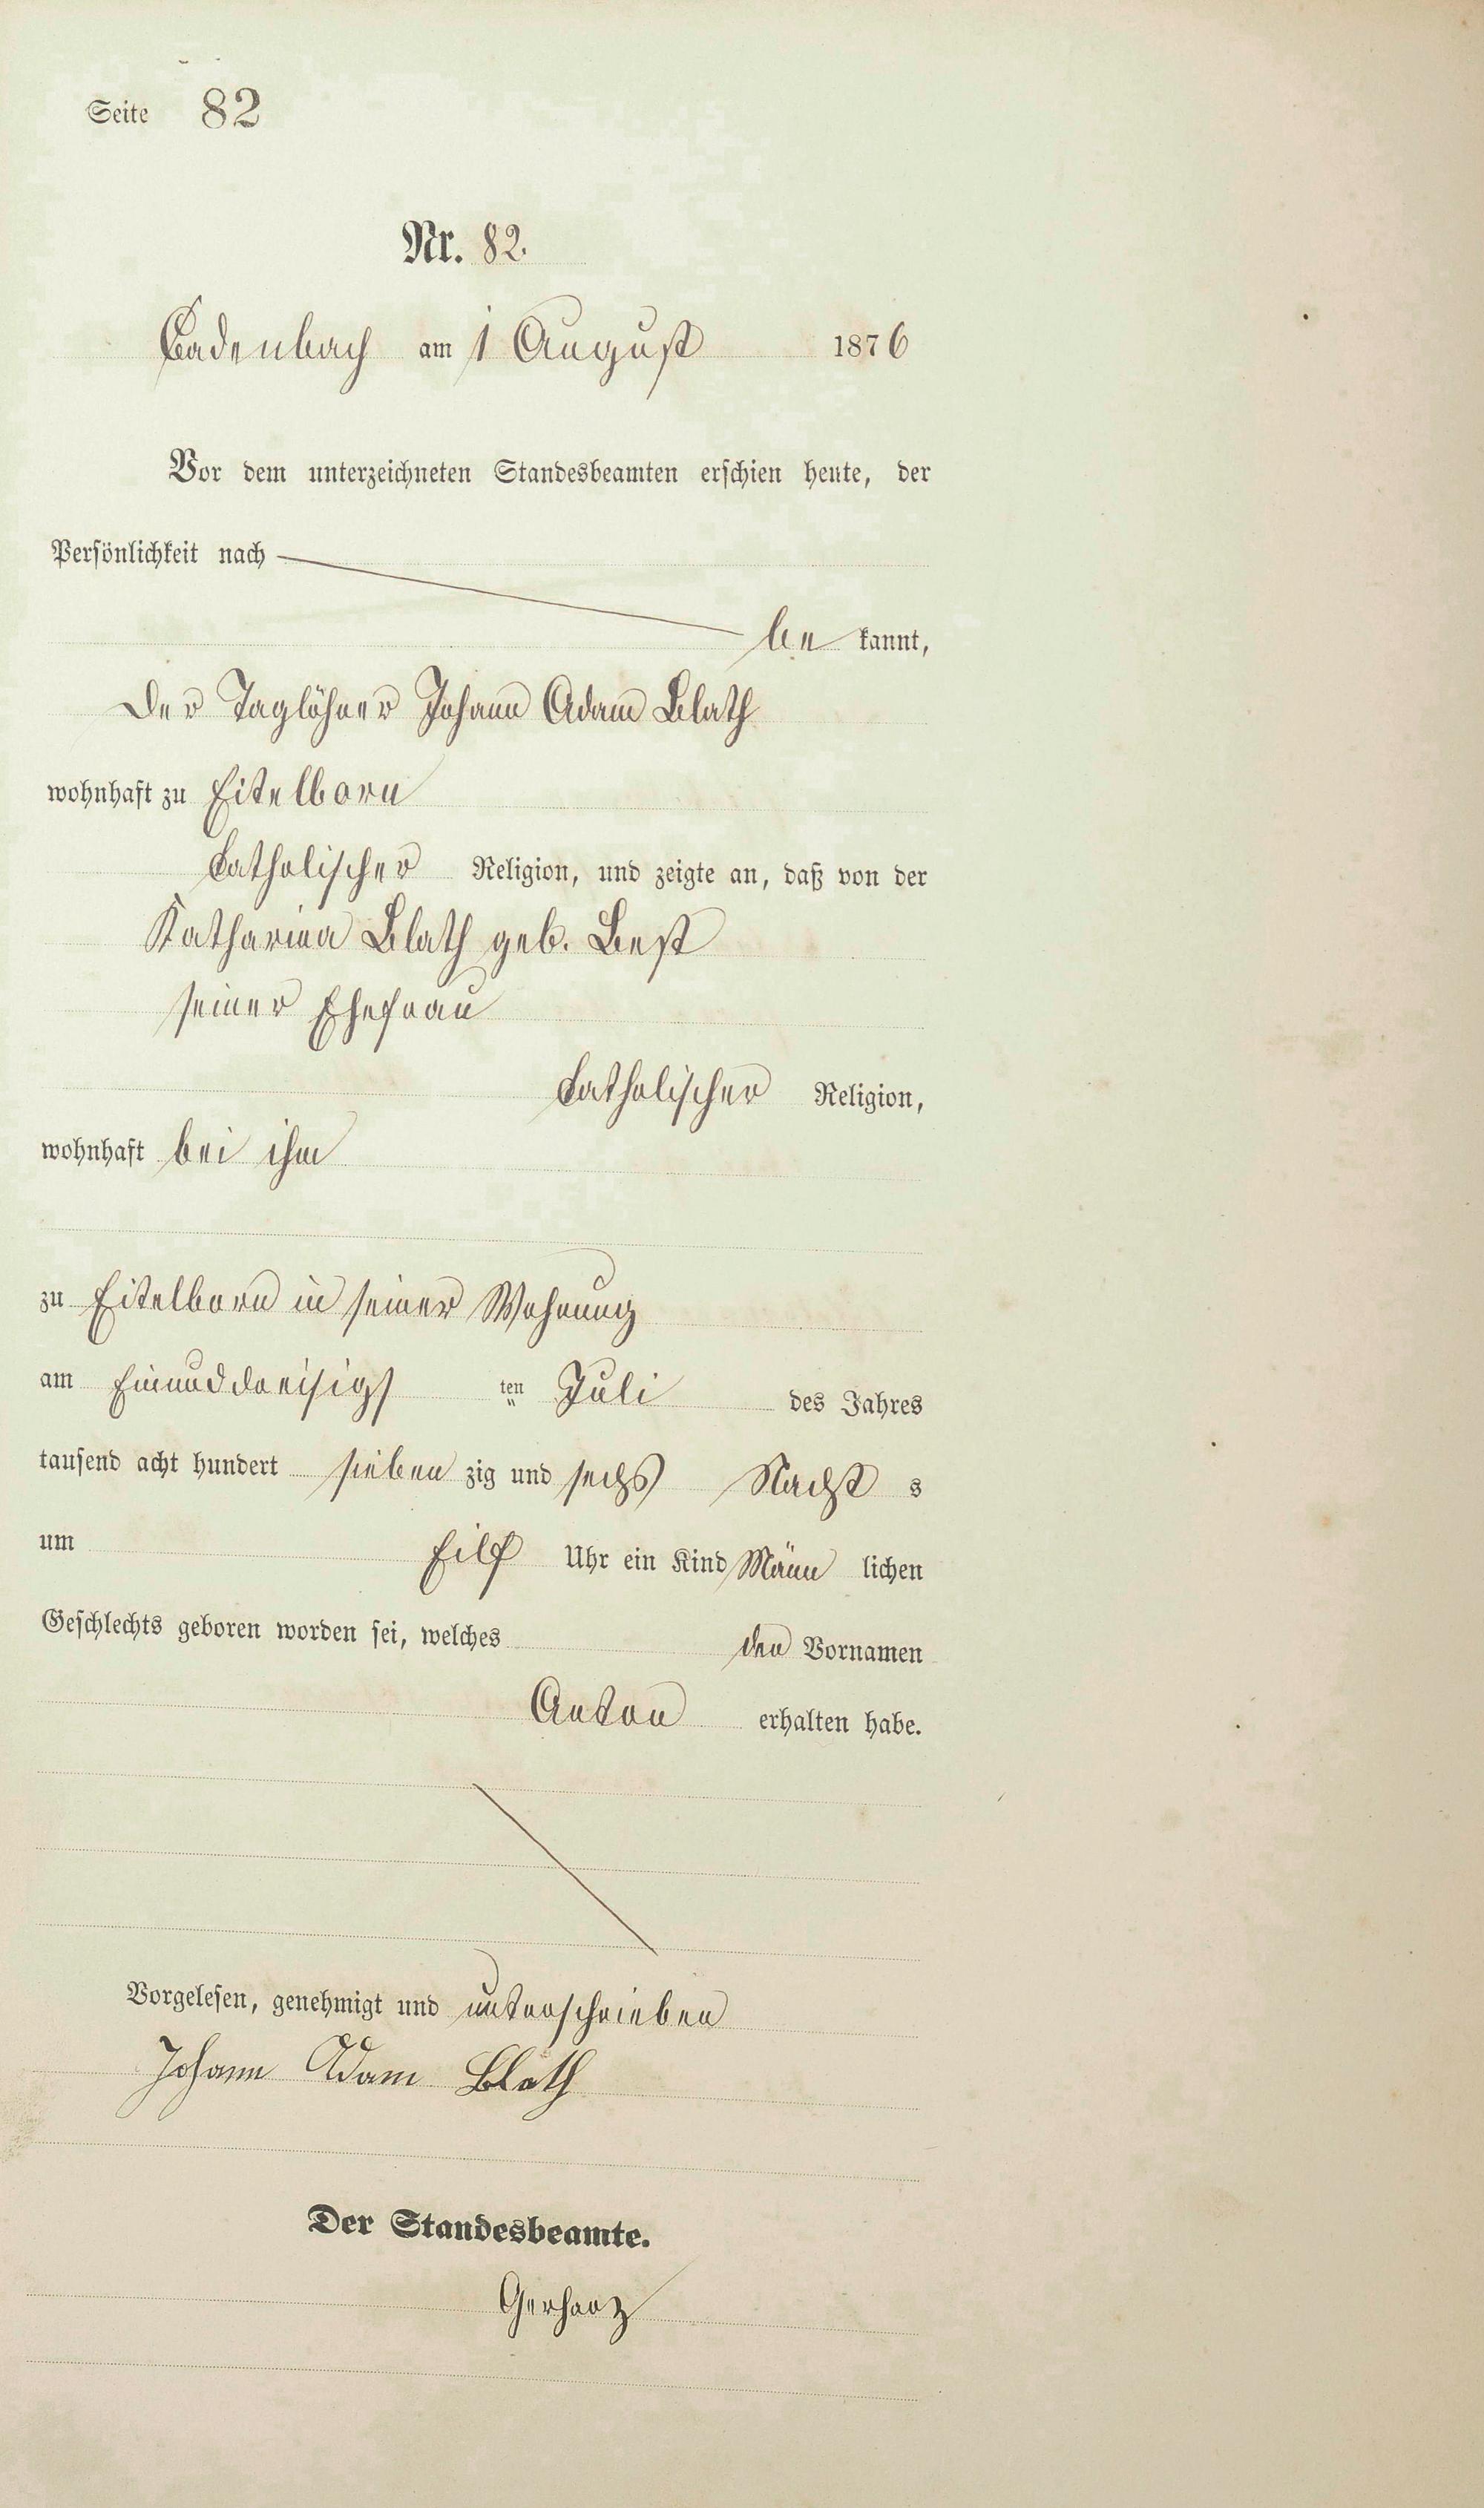 Seite 82
Nr. 82.
Cadenbach am 1 August 1876
Vor dem unterzeichneten Standesbeamten erschien heute, der
Persönlichkeit nach
be kannt,
der Taglöhner Johann Adam Blath
wohnhaft zu Eitelborn
Catholischer Religion, und zeigte an, daß von der
Katharina Blath geb. Best
seiner Ehefrau
Catholischer Religion,
wohnhaft bei ihm
zu Eitelborn in seiner Wohnung
am Einunddreisigs ten Juli des Jahres
tausend acht hundert sieben zig und sechs Nacht s
um Eilf Uhr ein Kind Männ lichen
Geschlechts geboren worden sei, welches den Vornamen
Anton erhalten habe.
Vorgelesen, genehmigt und unterschrieben
Johann Adam Blath
Der Standesbeamte.
Gerharz